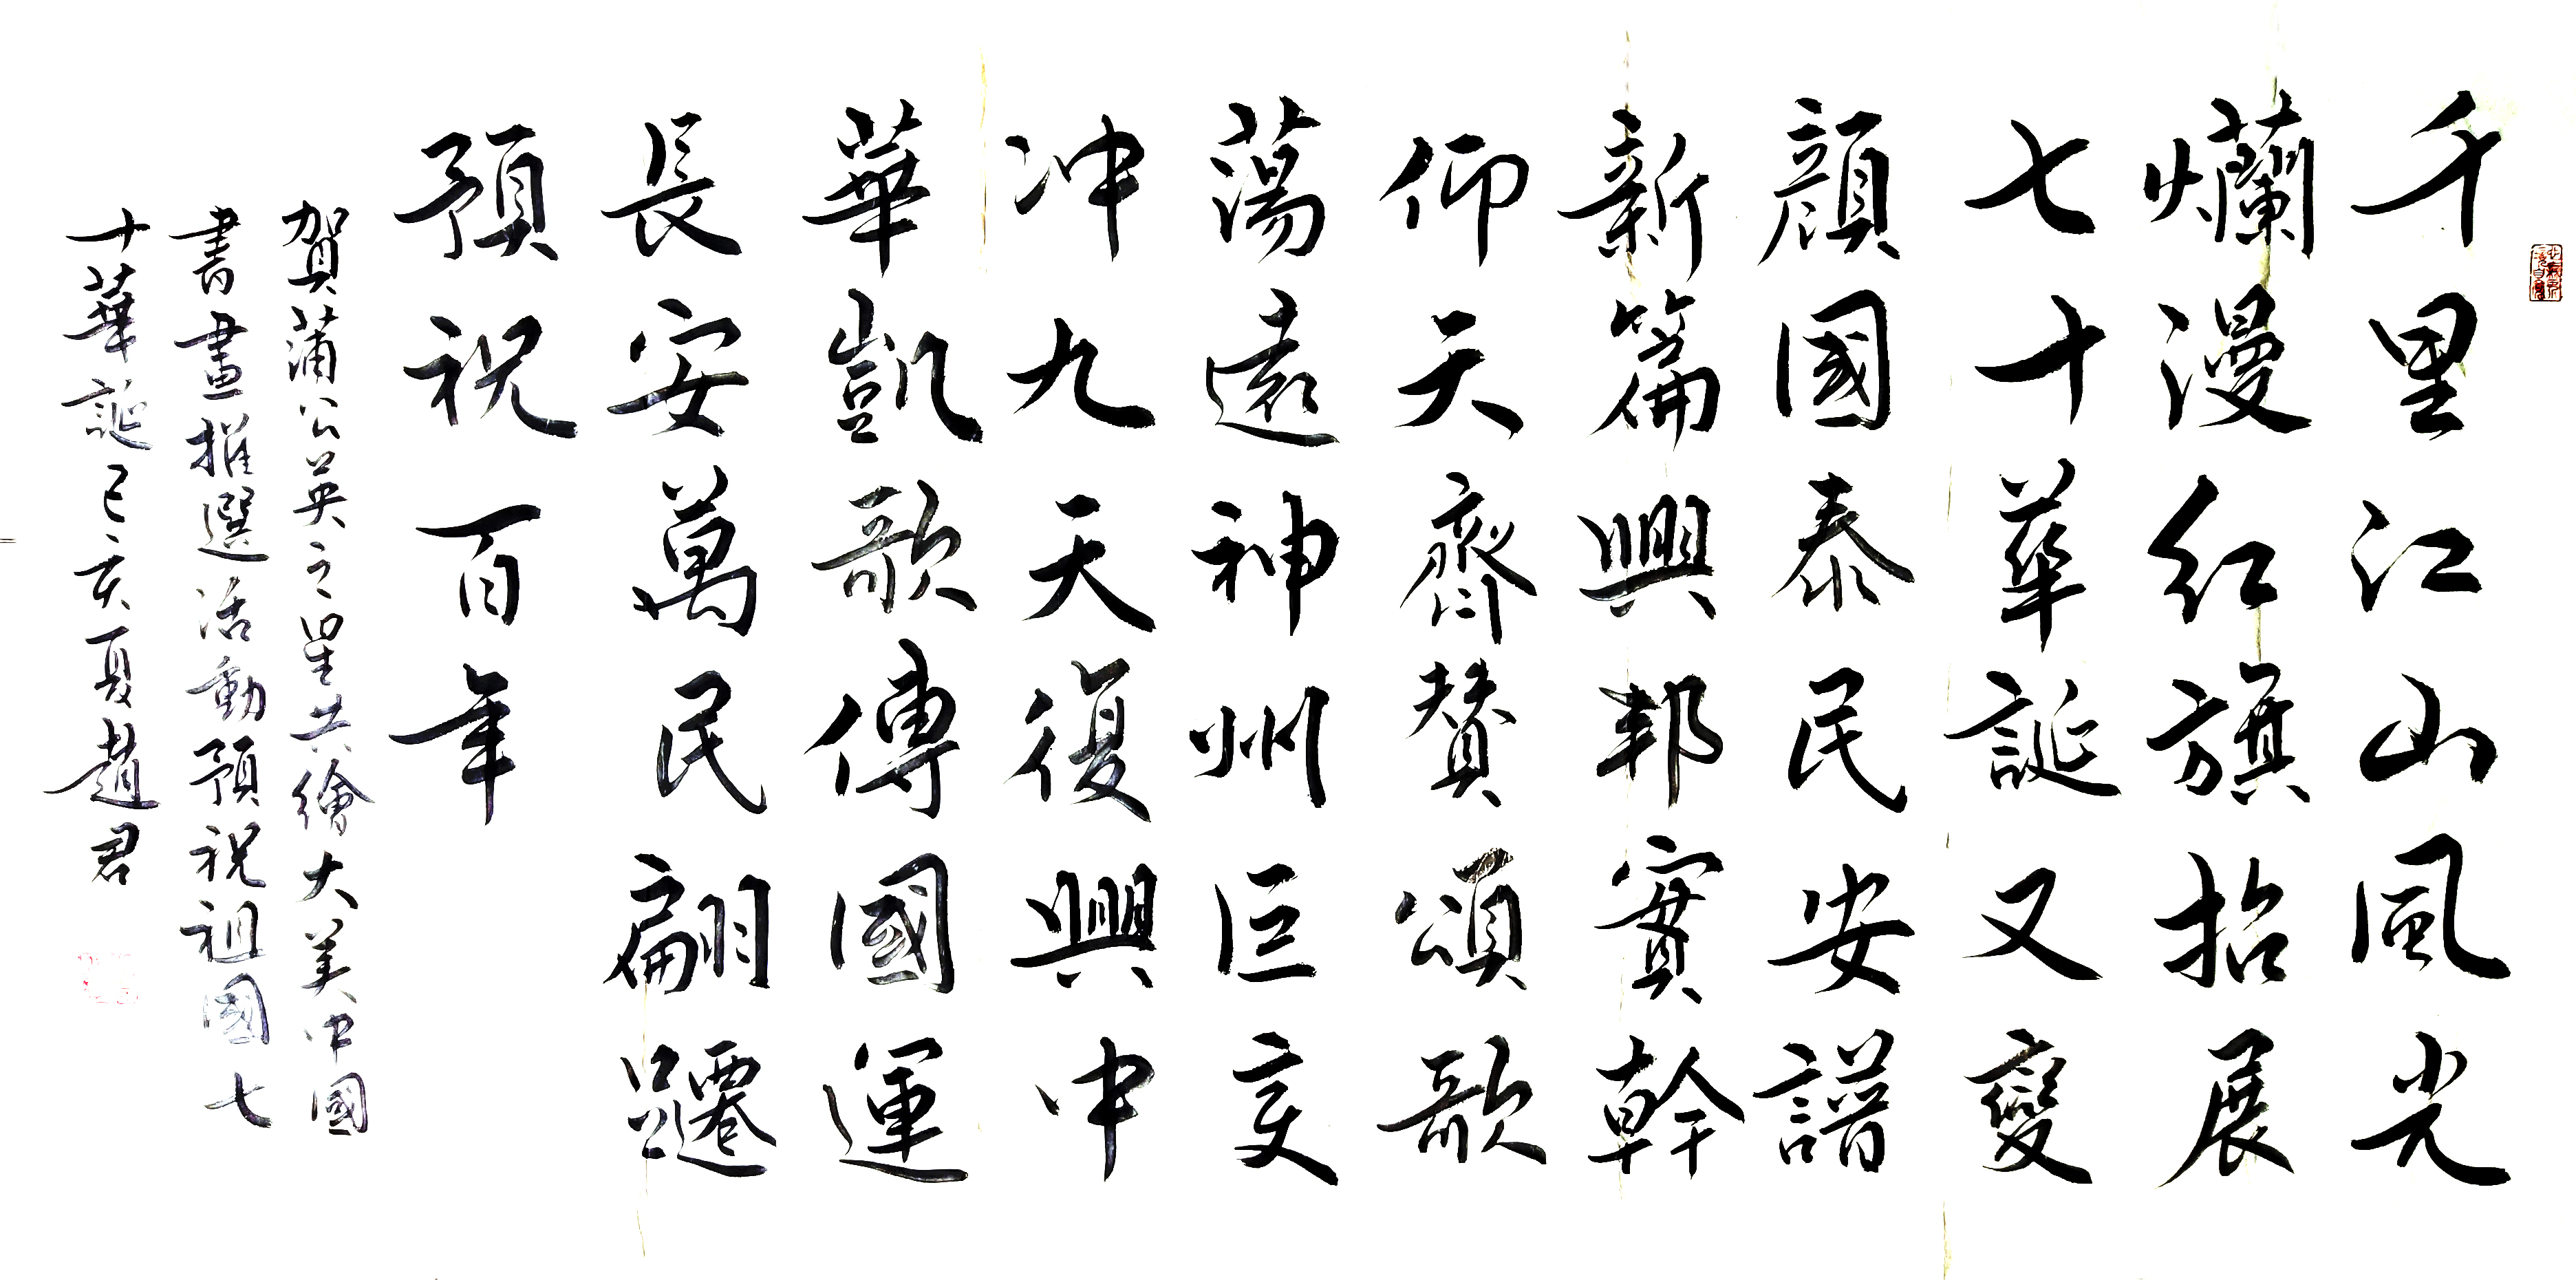 千里江山風光
爛漫紅旗招展
七十華誕又變
顏國泰民安譜
新篇興邦實幹
仰天齊贊頌歌
蕩遠神州巨变
冲九天復興中
華凱歌傳國運
長安萬民翩躚
預祝百年
賀蒲公英之星共繪大美中國
書畫推選活動預祝祖國七
十華誕己亥夏趙君